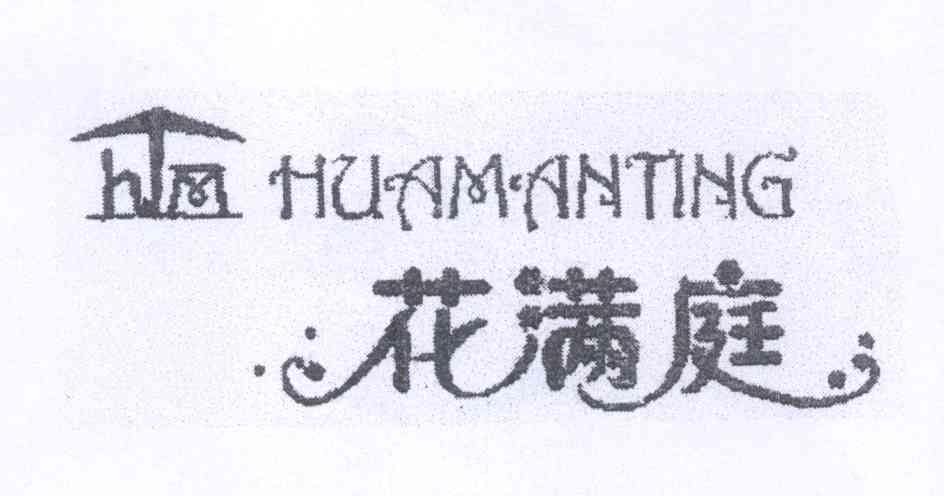 hTM HUAMANTING
花满庭